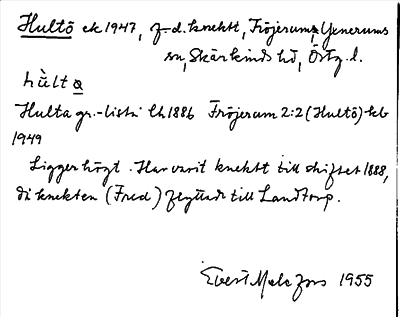 Hultö ek 1947, f.d. knektt, Fröjerums, Yxnerums
sn, Skärkinds hd, Östg. l.
hùlta
Hulta gr.-lista lh 1886 Fröjerum 2:2 (Hultö) kb
1949
Ligger högt. Har varit knektt till skiftet 1888,
då knekten (Fred) flyttade till Landtorp.
Evert Melefors 1955